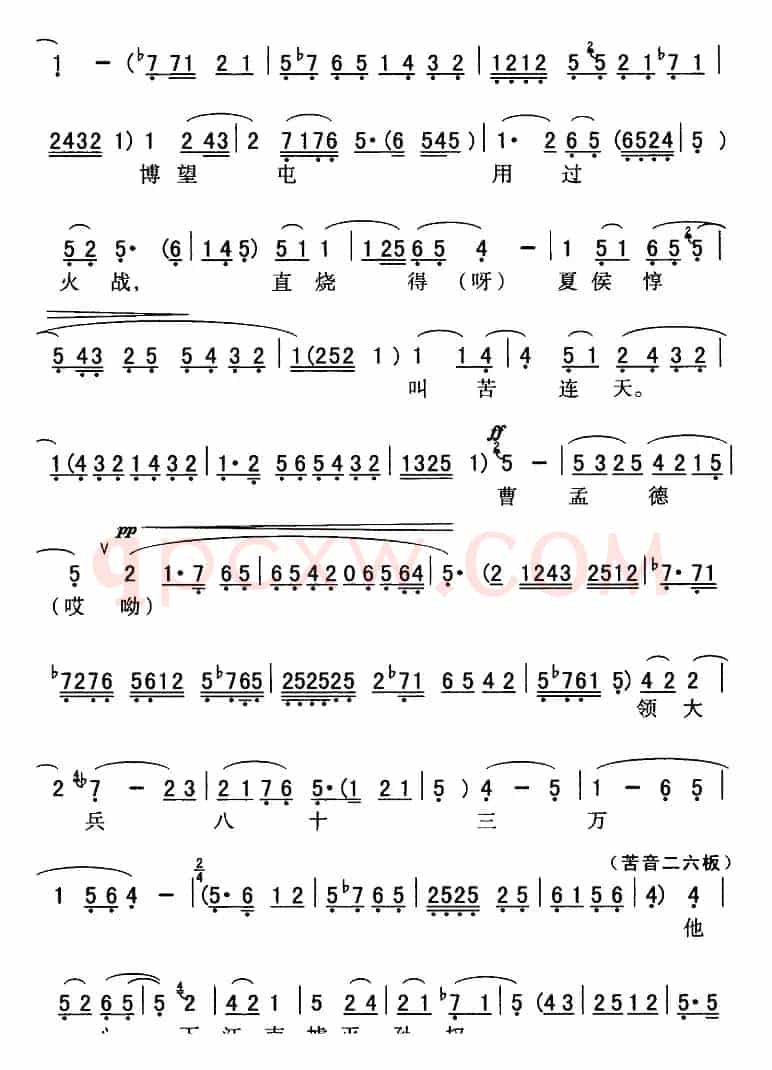 1 – (♭7 71 2 1 | 5 ♭7 6 5 1 4 3 2 | 1212 5 5 2 1 ♭7 1 |
2432 1) 1 2 43 | 2 7176 5·(6 545) | 1· 2 6 5 (6524 | 5 )
博 望 屯 用 过
5 2 5· (6 | 1 4 5) 5 1 1 | 1 25 6 5 4 – | 1 5 1 6 5 5 |
火 战, 直 烧 得 (呀) 夏 侯 惇
5 43 2 5 5 4 3 2 | 1(252 1 ) 1 1 4 | 4 5 1 2 4 3 2 |
叫 苦 连 天。
1(4 3 2 1 4 3 2 | 1·2 5 6 5 4 3 2 | 1325 1) 5 – | 5 3 2 5 4 2 1 5 |
ff
曹 孟 德
pp
5 2 1·7 6 5 | 6 5 4 2 0 6 5 64 | 5· (2 1243 2512 | ♭7·71
(哎 呦)
qpcxw.com
♭7276 5612 5♭765 | 252525 2♭71 6 5 4 2 | 5♭761 5) 4 2 2 |
领 大
2 ♭7 – 2 3 | 2 1 7 6 5·(1 2 1 | 5 ) 4 – 5 | 1 – 6 5 |
兵 八 十 三 万
(苦音二六板)
1 5 6 4 – | 2/4 (5·6 1 2 | 5♭7 6 5 | 2525 2 5 | 6 1 5 6 | 4) 4
他
5 2 6 5 | 5 2 | 4 2 1 | 5 2 4 | 4 2 ♭7 1 | 5 (43 | 2512 | 5·5